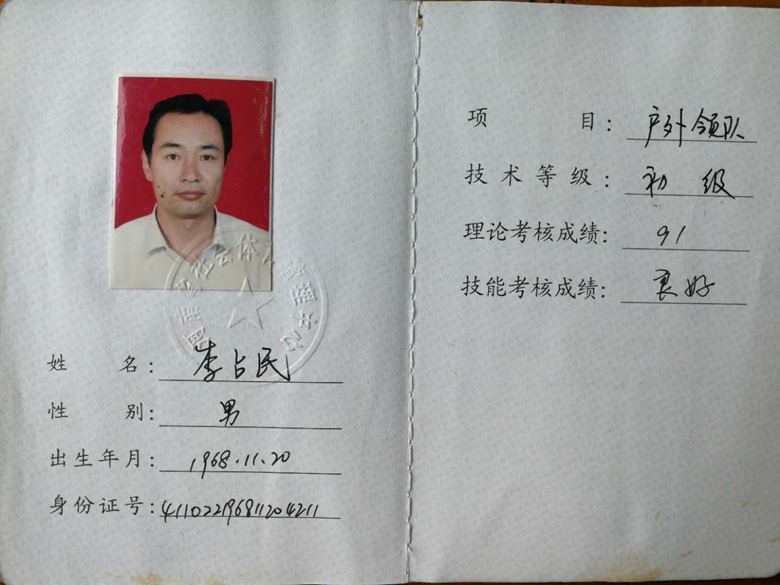 姓名：李占民
性别：男
出生年月：1968.11.20
身份证号：411022196811204211
项目：户外领队
技术等级：初级
理论考核成绩：91
技能考核成绩：良好